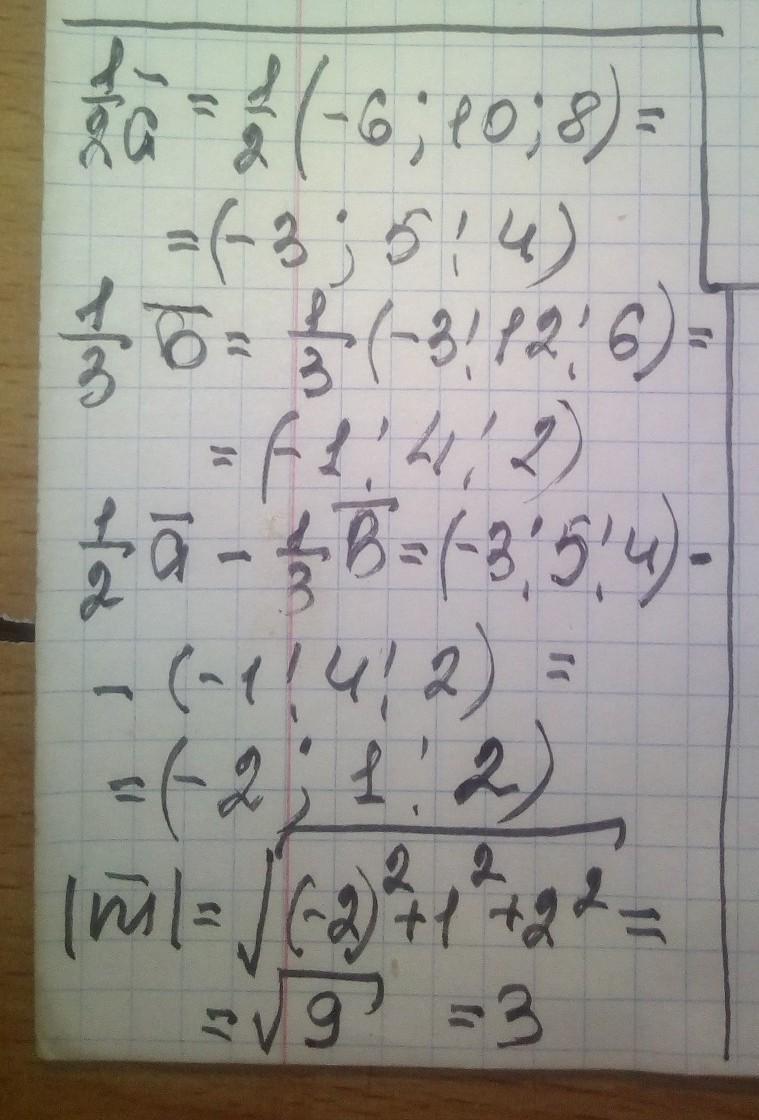 1/2 a̅ = 1/2 (-6; 10; 8) =
= (-3; 5; 4)
1/3 b̅ = 1/3 (-3; 12; 6) =
= (-1; 4; 2)
1/2 a̅ - 1/3 B̅ = (-3; 5; 4) -
- (-1; 4; 2) =
= (-2; 1; 2)
|m̅| = √((-2)² + 1² + 2²) =
= √9 = 3